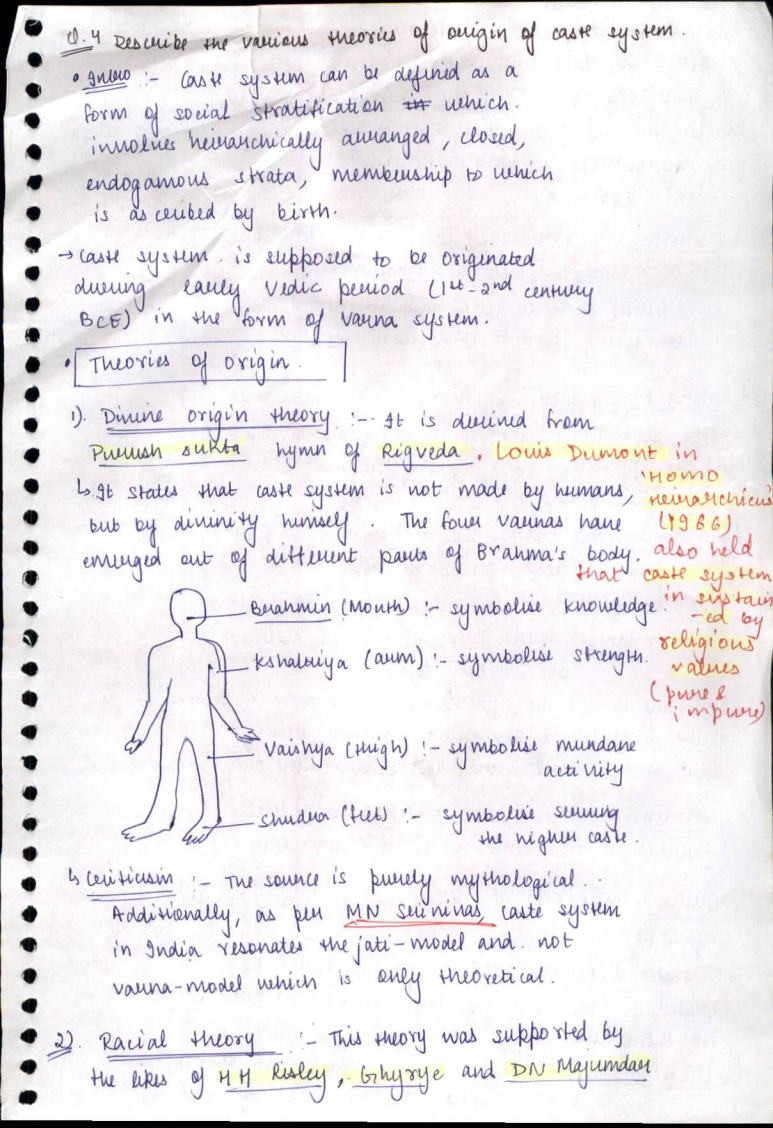 Q.4 Describe the various theories of origin of caste system.
• Intro :- Caste system can be defined as a
form of social stratification in which.
involves heirarchically arranged, closed,
endogamous strata, membership to which
is ascribed by birth.
→ Caste system is supposed to be originated
during early Vedic period (1st-2nd century
BCE) in the form of varna system.
• Theories of origin.
1). Divine origin theory :- It is derived from
Purush sukta hymn of Rigveda. Louis Dumont in
'Homo
↳ It states that caste system is not made by humans, heirarchicus'
but by divinity himself. The four varnas have (1966)
emerged out of different parts of Brahma's body. also held
that caste system
Brahmin (Mouth) :- symbolise knowledge. in sustain
-ed by
Kshatriya (arm) :- symbolise strength. religious
values
(pure &
impure)
Vaishya (thigh) :- symbolise mundane
activity
Shudra (feet) :- symbolise serving
the higher caste.
↳ Criticism :- The source is purely mythological.
Additionally, as per MN Srinivas, caste system
in India resonates the jati-model and not
varna-model which is only theoretical.
2). Racial theory :- This theory was supported by
the likes of HH Risley, Ghyrye and DN Majumdar